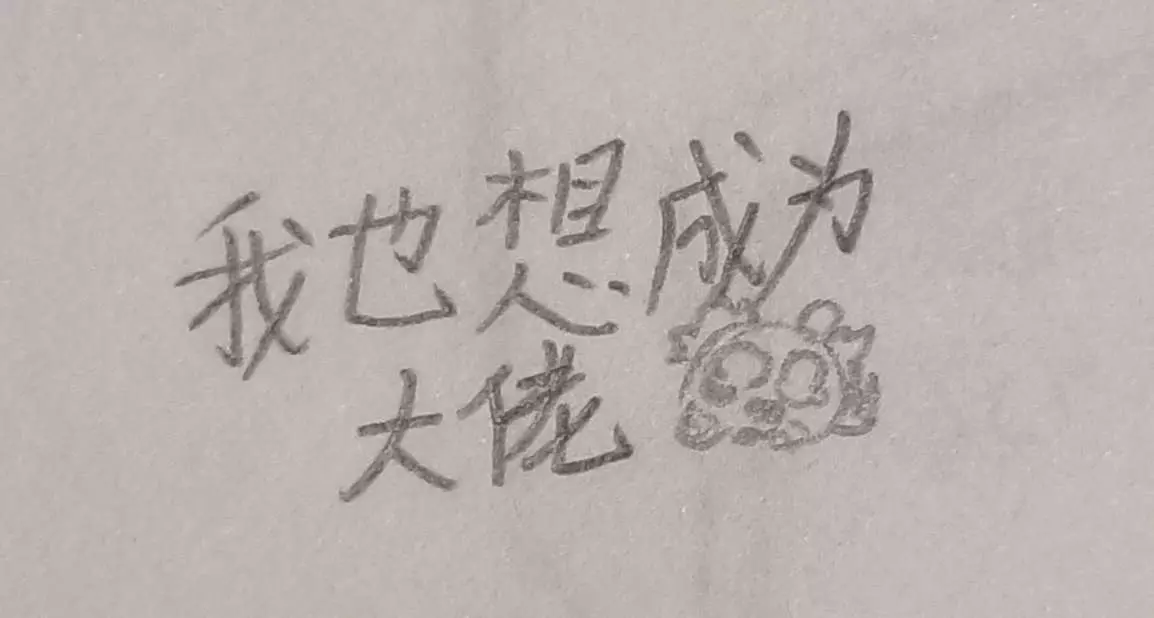 我也想成为
大佬